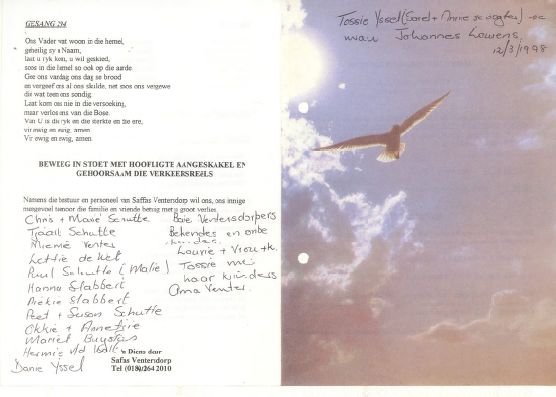 GESANG 294
Ons Vader wat woon in die hemel,
geheilig sy u Naam,
laat u ryk kom, u wil geskied,
soos in die hemel so ook op die aarde.
Gee ons vandag ons dag se brood
en vergeef ons al ons skulde, net soos ons vergewe
die wat teen ons sondig.
Laat kom ons nie in die versoeking,
maar verlos ons van die Bose.
Van U is die ryk en die sterkte en die ere,
vir ewig en ewig, amen.
Vir ewig en ewig, amen.
BEWEEG IN STOET MET HOOFLIGTE AANGESKAKEL EN
GEHOORSAAM DIE VERKEERSREËLS
Namens die bestuur en personeel van Saffas Ventersdorp wil ons, ons innige
meegevoel teenoor die familie en vriende betuig met u groot verlies
Chris + Marie Schutte
Tjaart Schutte
Miemie Venter
Lettie de Wet
Paul Schutte (Malie)
Hanna Slabbert
Driekie Slabbert
Peet + Susan Schutte
Okkie + Annetjie
Mariel Buystas
Hermie v/d Walt
Danie Yssel
Baie Ventersdorpers
Bekendes en onbe
kendes.
Lourie + Vrou + k.
Tossie me
haar kinders
Ama Venter.
'n Diens deur
Saffas Ventersdorp
Tel (018) 264 2010
Tossie Yssel (Sarel + Annie se dogter) se
man Johannes Lowens.
12/3/1998